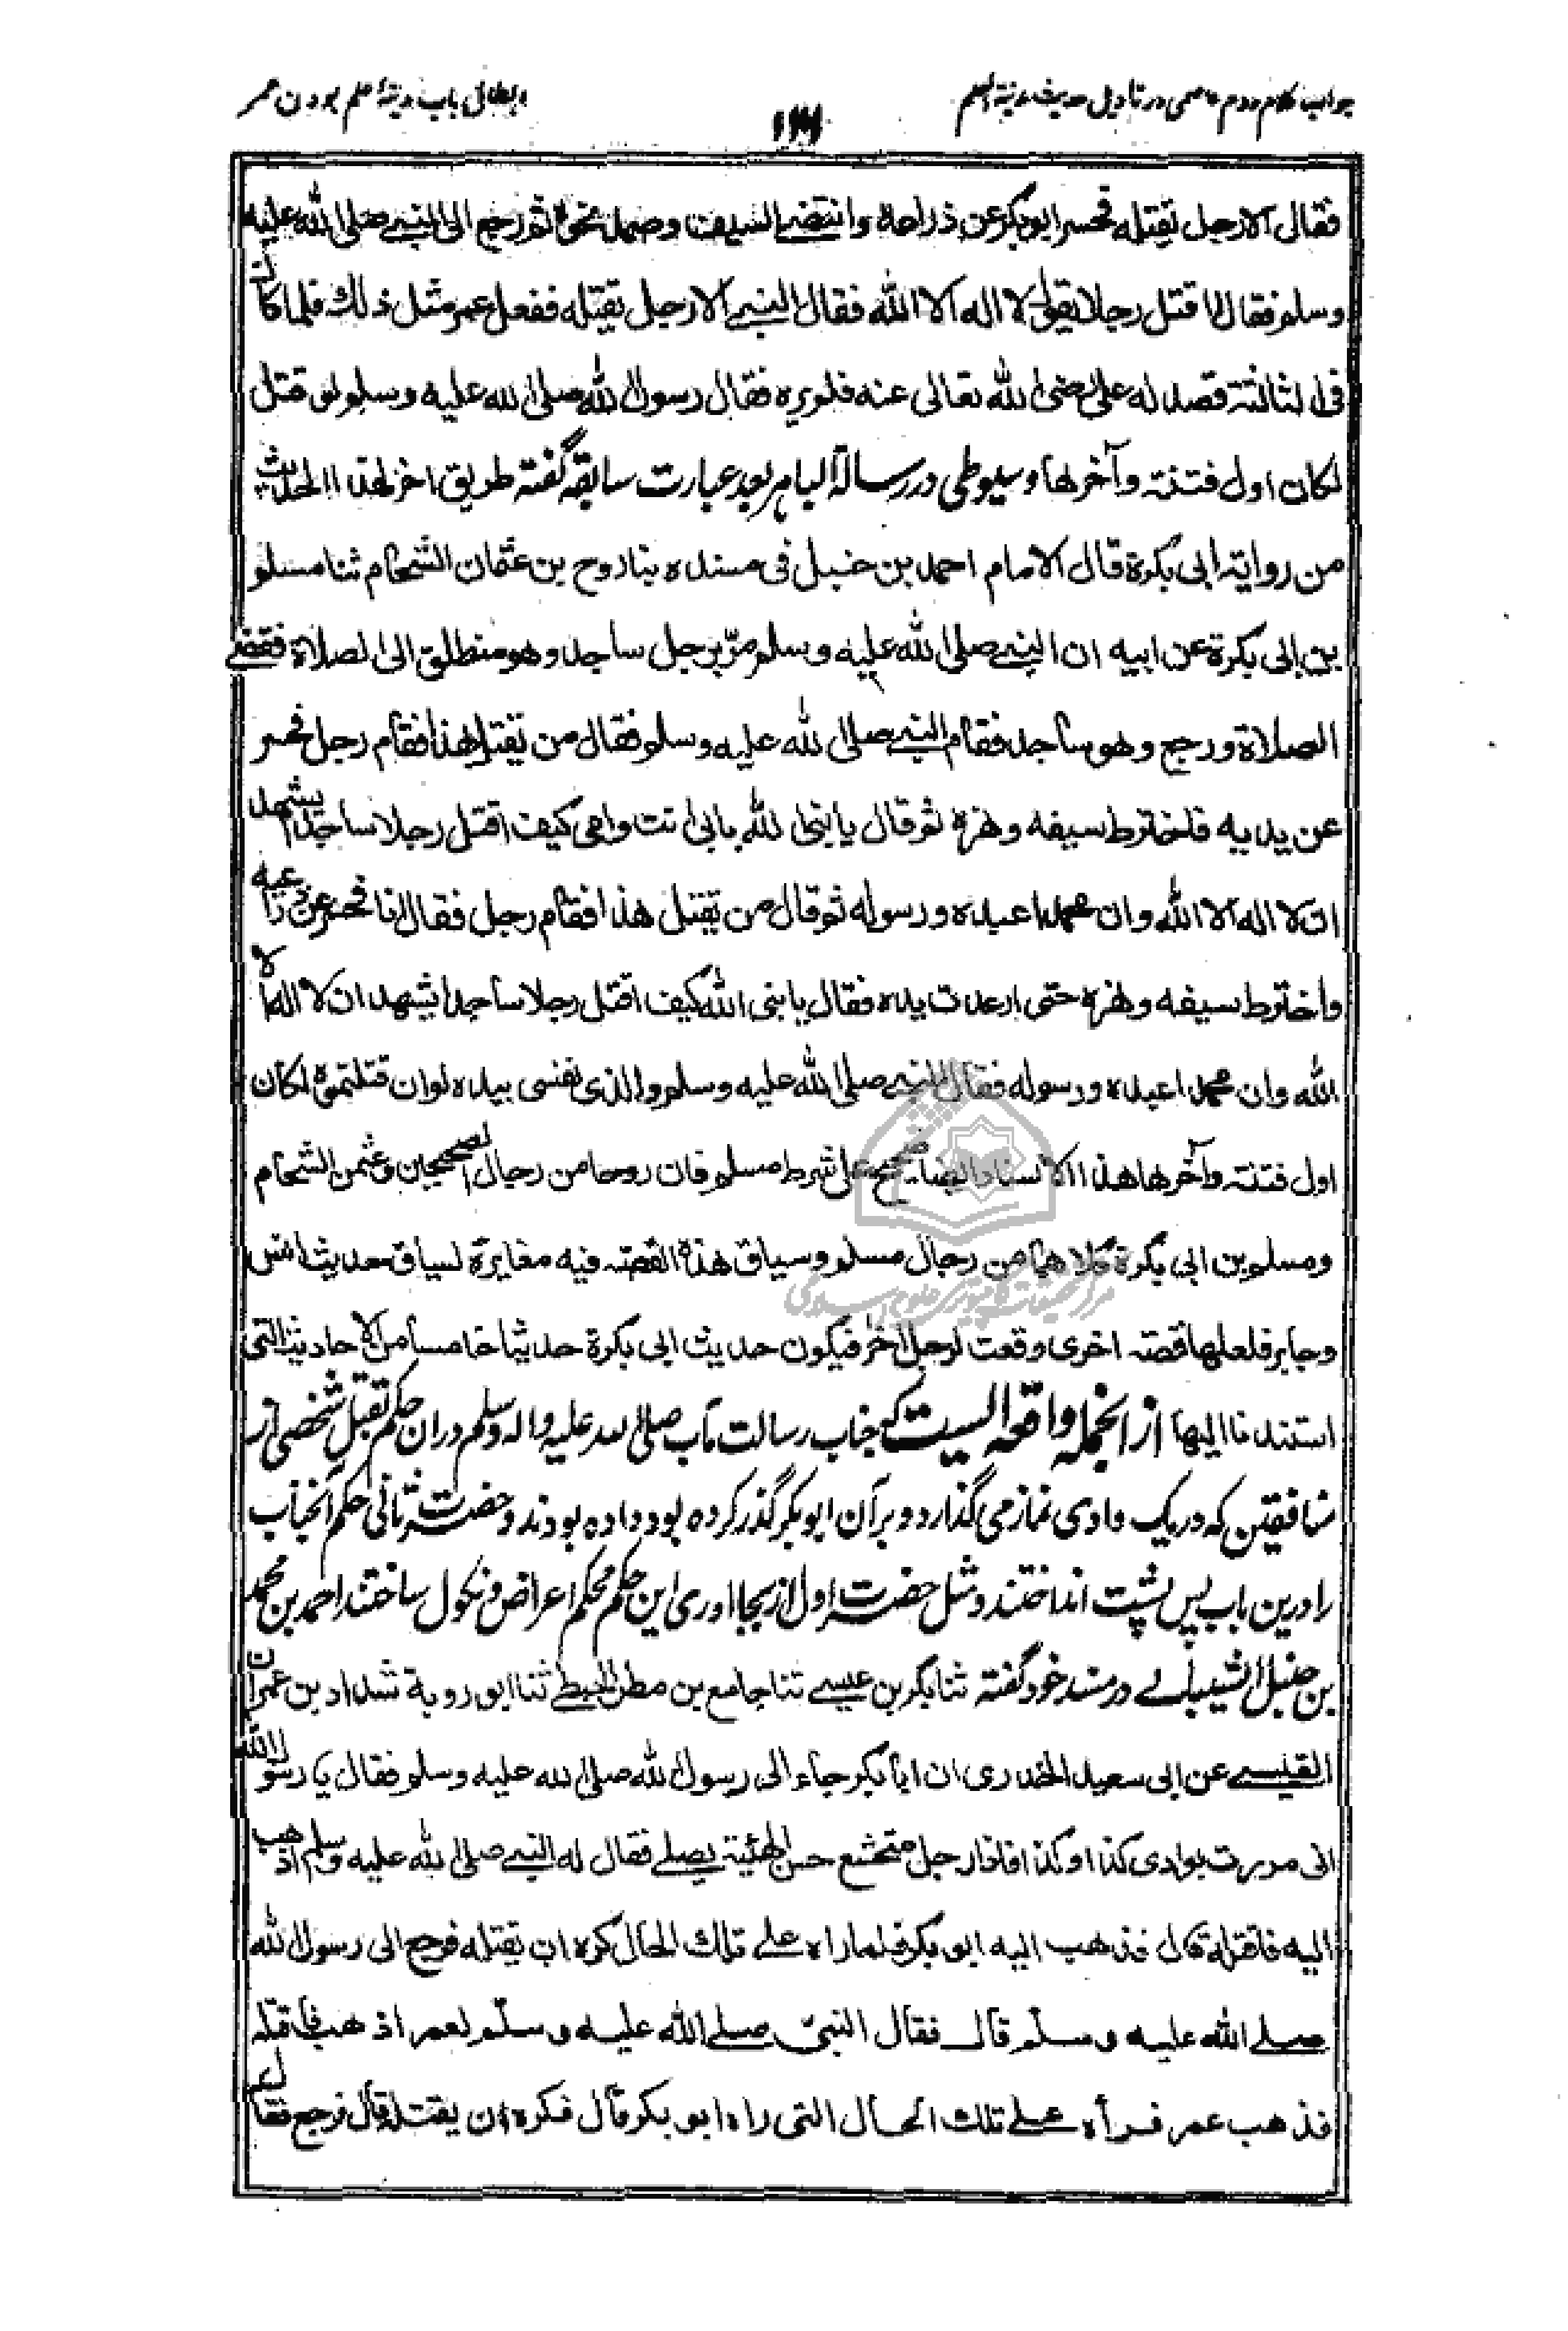 جواب کلام دوم عاصمی در تاویل حدیث مدینة العلم
ابطال باب مدینۀ علم بودن عمر
فقال الا رجل یقتله فحسر ابو بکر عن ذراعه وانتضی السیف وصمل نحوه ثم رجع الی النبی صلی الله علیه
وسلم فقال ااقتل رجلا یقول لا اله الا الله فقال النبی الا رجل یقتله ففعل عمر مثل ذلك فلما کان
فی الثالثة قصد له علی رضی الله تعالی عنه فلم یره فقال رسول الله صلی الله علیه وسلم لو قتل
لکان اول فتنة وآخرها وسیوطی در رسالۀ الباهر بعد عبارت سابقه گفته طریق اخر لهذا الحدیث
من روایة ابی بکرة قال الامام احمد بن حنبل فی مسنده ثنا روح بن عثمان الشحام ثنا مسلم
بن ابی بکرة عن ابیه ان النبی صلی الله علیه وسلم مرّ برجل ساجد وهو منطلق الی الصلاة فقضی
الصلاة ورجع وهو ساجد فقام النبی صلی الله علیه وسلم فقال من یقتل هذا فقام رجل فحسر
عن یدیه فاخترط سیفه وهزه ثم قال یا نبی الله بابی انت وامی کیف اقتل رجلا ساجدا یشهد
ان لا اله الا الله وان محمدا عبده ورسوله ثم قال من یقتل هذا فقام رجل فقال انا فحسر عن ذراعیه
واخترط سیفه وهزه حتی ارعدت یده فقال یا نبی الله کیف اقتل رجلا ساجدا یشهد ان لا اله الا
الله وان محمدا عبده ورسوله فقال النبی صلی الله علیه وسلم والذی نفسی بیده لو ان قتلتموه لکان
اول فتنة وآخرها هذا الاسناد ایضا صحیح علی شرط مسلم فان روحا من رجال الصحیحین وعثمن الشحام
ومسلم بن ابی بکرة کلاهما من رجال مسلم وسیاق هذه القصة فیه مغایرة لسیاق حدیث انس
وجابر فلعلها قصة اخری وقعت لرجل اخر فیکون حدیث ابی بکرة حدیثا خامسا من الاحادیث التی
استندنا الیها از انجمله واقعه ایست که جناب رسالت مآب صلی الله علیه واله وسلم در ان حکم بقتل شخصی از
منافقین که در یک وادی نماز می گذارد و بر آن ابو بکر گذر کرده بود داده بودند و حضرت ثانی حکم آنجناب
را درین باب پس پشت انداختند و مثل حضرت اول از بجا اوری این حکم محکم اعراض و نکول ساختند احمد بن محمد
بن حنبل الشیبانی در مسند خود گفته ثنا بکر بن عیسی ثنا جامع بن مطر الحبطی ثنا ابو روبة شداد بن عمران
القیسی عن ابی سعید الخدری ان ابا بکر جاء الی رسول الله صلی الله علیه وسلم فقال یا رسول الله
انی مررت بوادی کذا وکذا فاذا رجل متخشع حسن الهیئة یصلی فقال له النبی صلی الله علیه وسلم اذهب
الیه فاقتله قال فذهب الیه ابو بکر فلما راه علی تلك الحال کره ان یقتله فرجع الی رسول الله
صلی الله علیه وسلم قال فقال النبی صلی الله علیه وسلّم لعمر اذهب فاقتله
فذهب عمر فرأه علی تلك الحال التی راه ابو بکر قال فکره ان یقتله قال فرجع فقال